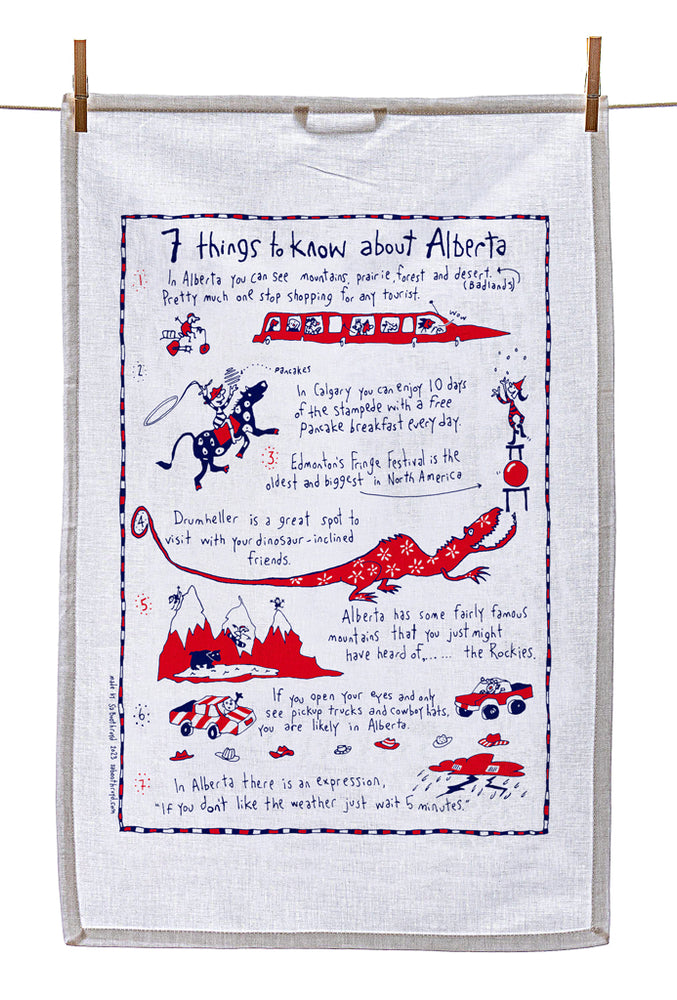 7 things to know about Alberta
1.
In Alberta you can see mountains, prairie, forest and desert.
(Badlands)
Pretty much one stop shopping for any tourist.
WOW
2.
PANCAKES
In Calgary you can enjoy 10 days
of the stampede with a free
pancake breakfast every day.
3. Edmonton's Fringe Festival is the
oldest and biggest in North America
4. Drumheller is a great spot to
visit with your dinosaur-inclined
friends.
5.
Alberta has some fairly famous
mountains that you just might
have heard of,... ... the Rockies.
6. If you open your eyes and only
see pickup trucks and cowboy hats,
you are likely in Alberta.
7. In Alberta there is an expression,
"If you don't like the weather just wait 5 minutes."
2023